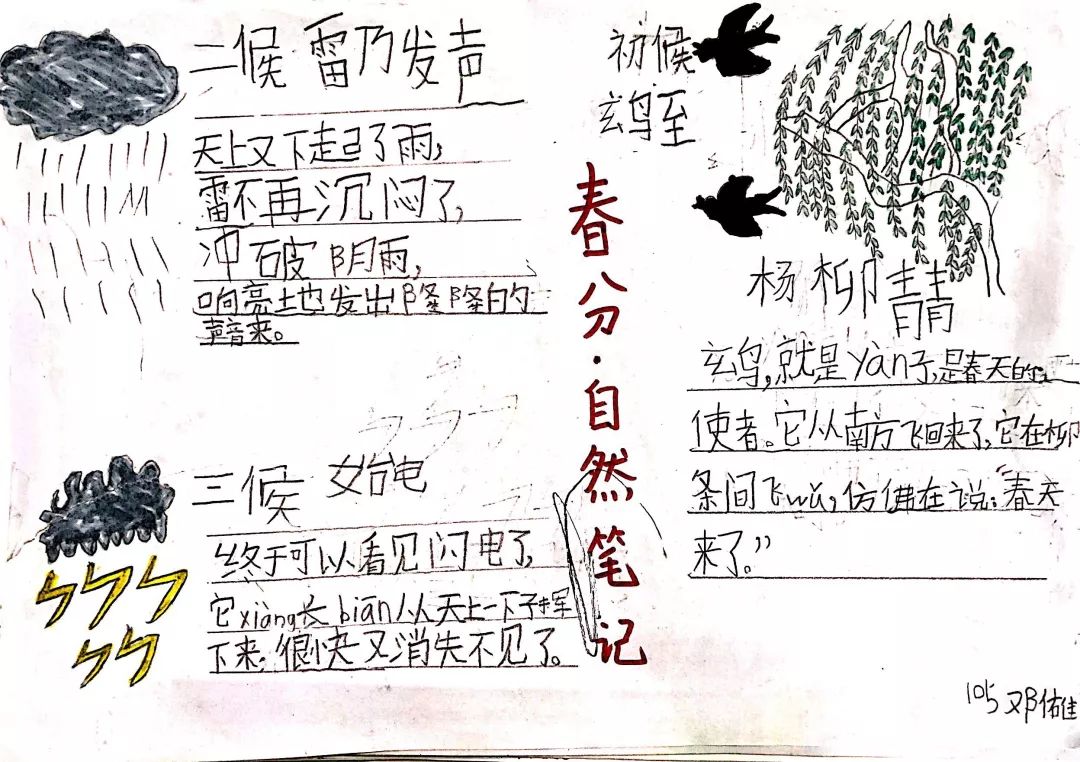 春分·自然笔记
初候
玄鸟至
杨柳青青
玄鸟,就是yàn子,是春天的
使者。它从南方飞回来了,它在柳
条间飞wǔ,仿佛在说:“春天
来了。”
二候 雷乃发声
天上又下起了雨,
雷不再沉闷了,
冲破阴雨,
响亮土也发出隆隆的
声音来。
三候 始电
终于可以看见闪电了,
它xiàng长biān从天上一下子挥
下来,很快又消失不见了。
105 邓